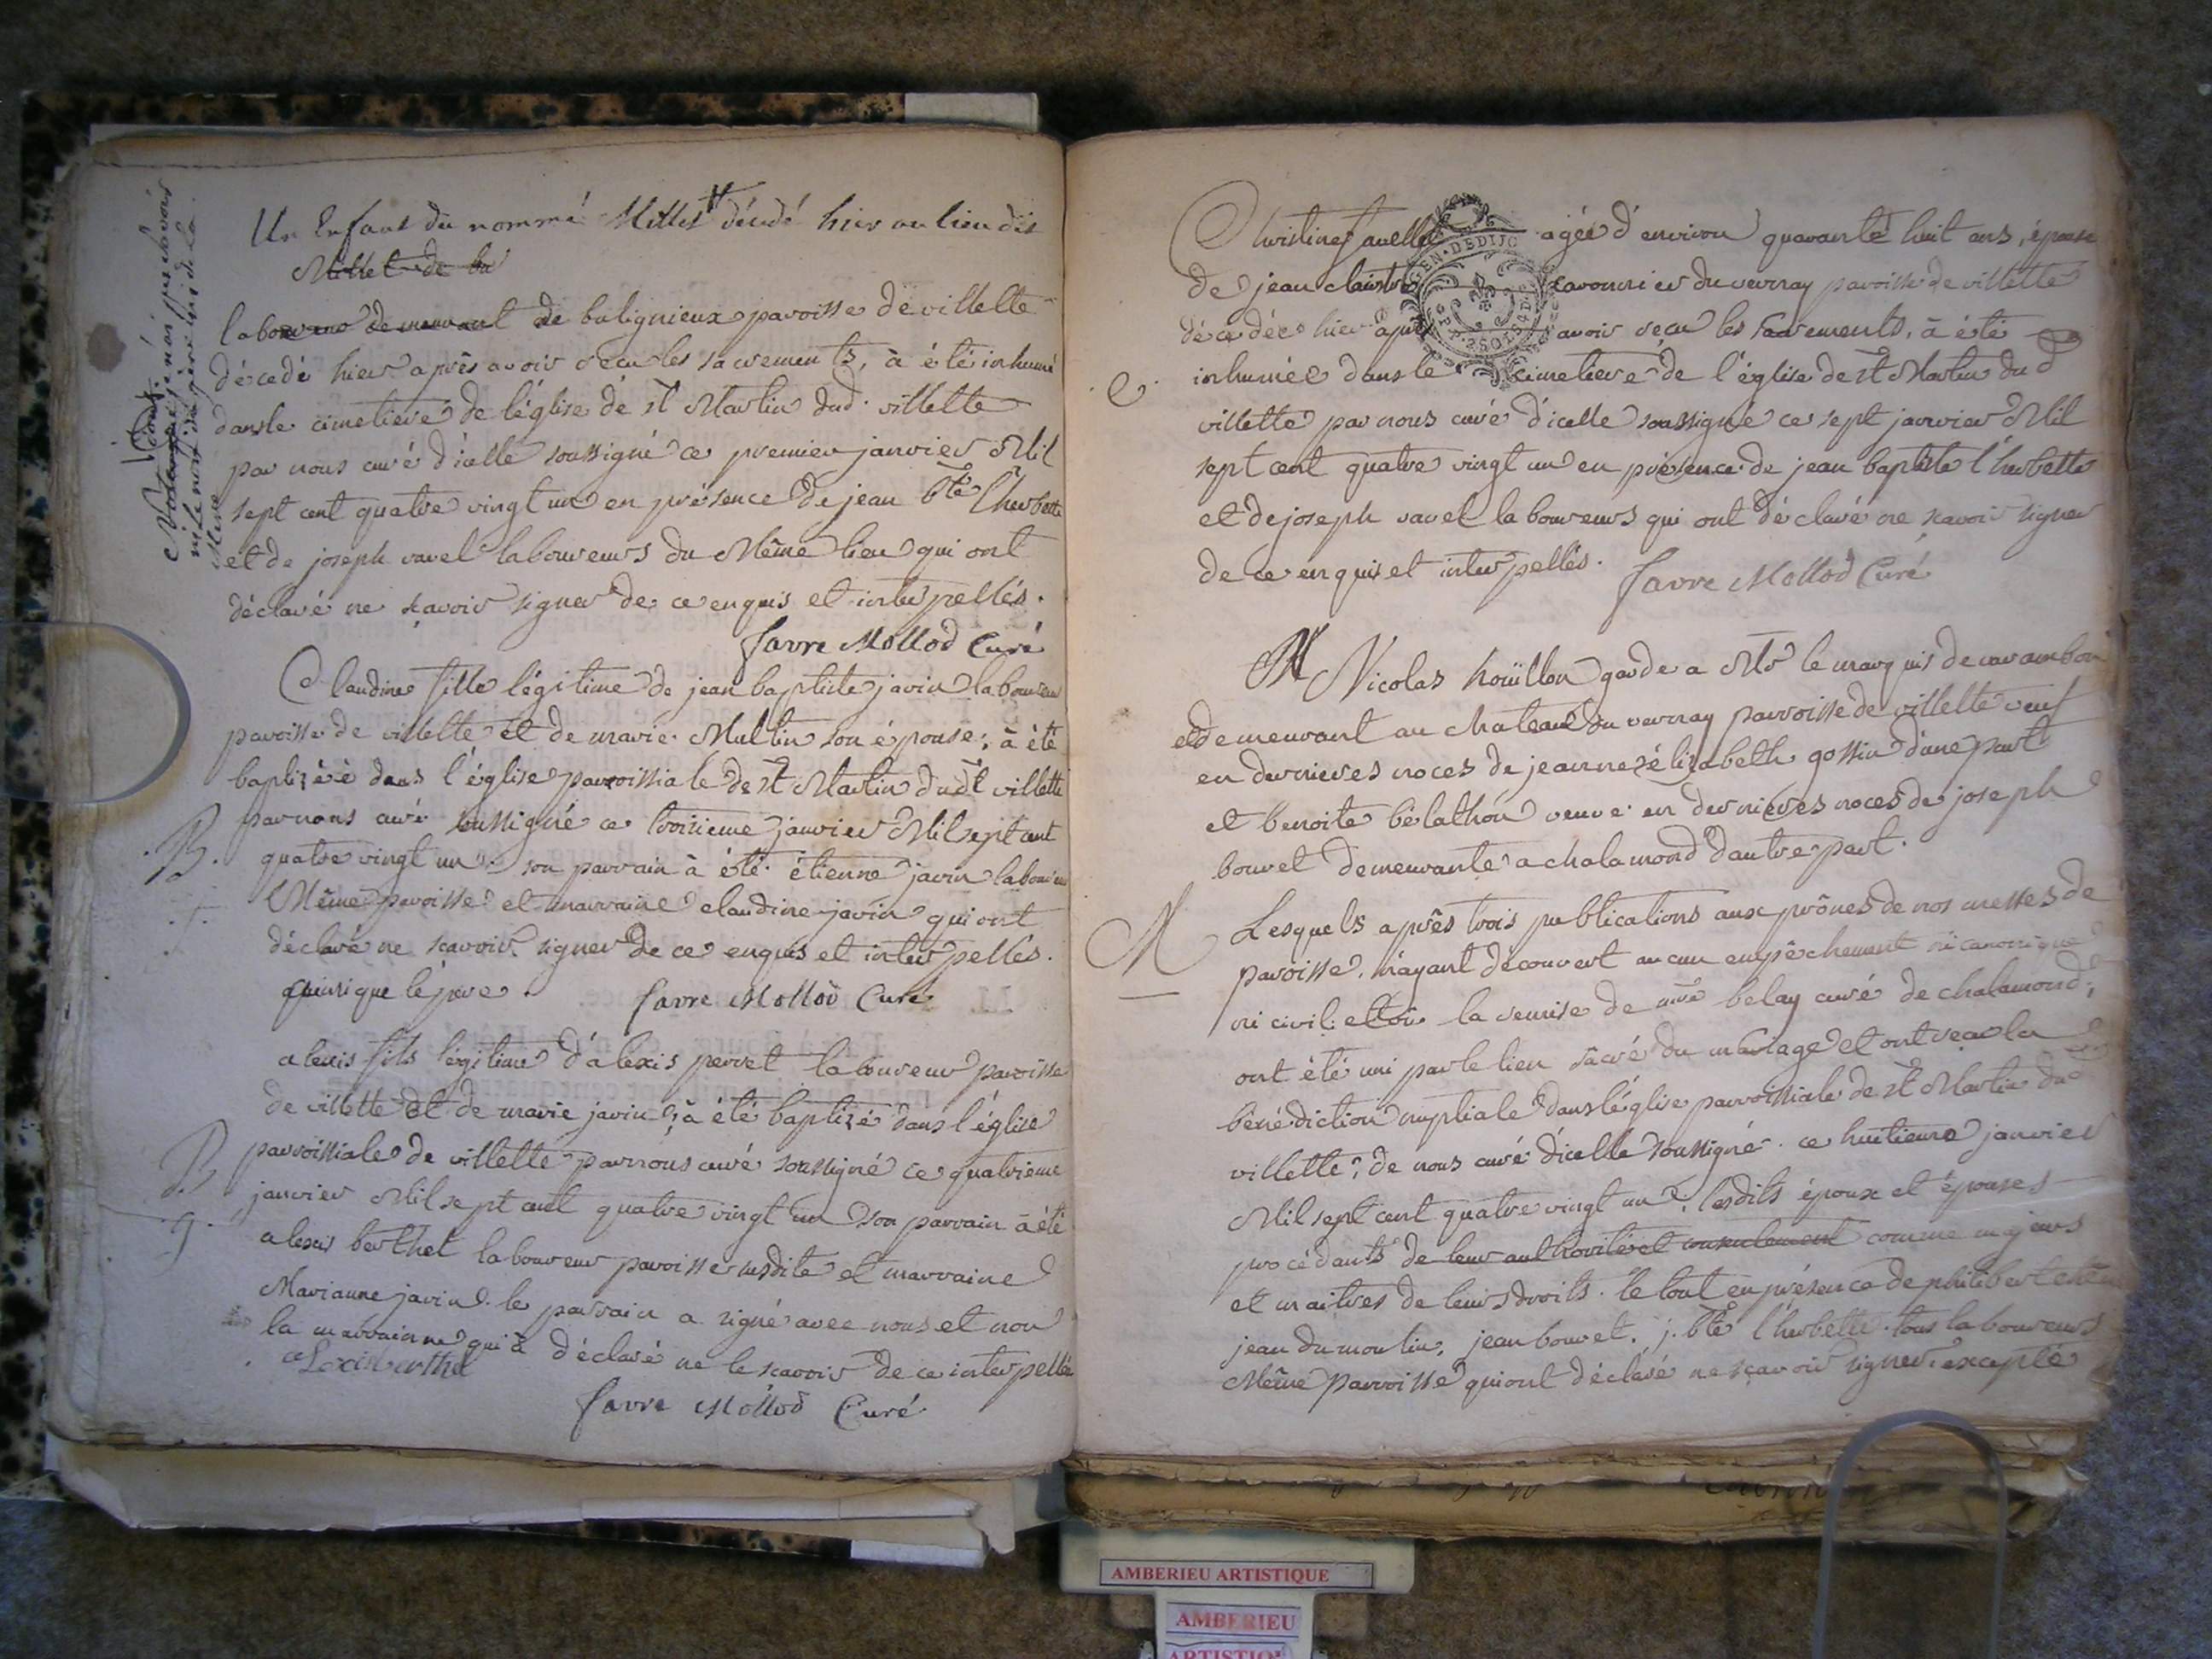 Un Enfant du nommé Millet décédé hier au lieu dit
Millet de ba
laboureur demeurant de balignieux paroisse de villette
décedé hier après avoir reçu les sacrements, à été inhumé
dans le cimetiere de l'église de st Martin dud. villette
par nous curé d'icelle soussigné ce premier janvier Mil
sept cent quatre vingt un en présence de jean bte l'herbette
et de joseph ravel laboureurs du Même lieu qui ont
déclaré ne sçavoir signer de ce enquis et interpellés.
favre Mollod Curé
Claudine fille légitime de jean baptiste javin laboureur
paroisse de villette et de marie Multin son épouse, à été
baptizéé dans l'église parroissiale de st Martin dudt villette
par nous curé soussigné ce troisieme janvier Mil sept cent
.B. quatre vingt un son parrain à été étienne javin laboureur
Même paroisse et marraine claudine javin qui ont
déclaré ne sçavoir signer de ce enquis et interpellés.
ainsi que le pere. favre Mollod Curé
alexis fils légitime d'alexis perret laboureur paroisse
de villette et de marie javin, à été baptizé dans l'église
B parroissiale de villette par nous curé soussigné ce quatrieme
janvier Mil sept cent quatre vingt un son parrain à été
alexis berthet laboureur paroisse susdite et marraine
Marianne javin. le parrain a signé avec nous et non
la marrainne qui à déclaré ne le scavoir de ce interpellée
alexis berthet
favre Mollod Curé
Christine agée d'environ quarante huit ans, épouse
de jean du vernay paroisse de villette
décedée hier après avoir reçu les sacrements, à été
inhumée dans le cimetiere de l'église de st Martin dud
villette par nous curé d'icelle soussigné ce sept janvier Mil
sept cent quatre vingt un en présence de jean baptiste l'herbette
et de joseph ravel laboureurs qui ont déclaré ne sçavoir signer
de ce enquis et interpellés. favre Mollod Curé
Nicolas houïllon garde a Mr le marquis de varambon
et demeurant au chateau du vernay parroisse de villette veuf
en dernieres noces de jeanne élizabeth gossin d'une part
et benoite bélathon veuve en dernieres noces de joseph
bouvet demeurante a chalamond d'autre part.
M Lesquels après trois publications aux prônes de nos messes de
paroisse, n'ayant découvert aucun empêchement ni canonique
ni civil et la remise de mre belay curé de chalamond,
ont été uni par le lien sacré du mariage et ont reçu la
bénédiction nuptiale dans l'église parroissiale de st Martin dud
villette, de nous curé d'icelle soussigné. ce huitieme janvier
Mil sept cent quatre vingt un, lesdits époux et épouses
procédants de leur authorité et comme majeurs
et maitres de leurs droits. le tout en présence de philibert et
jean dumoulin, jean bouvet, j. bte l'herbette tous laboureurs
Même parroisse qui ont déclaré ne sçavoir signer, excepté
AMBERIEU ARTISTIQUE
AMBERIEU
ARTISTIQUE